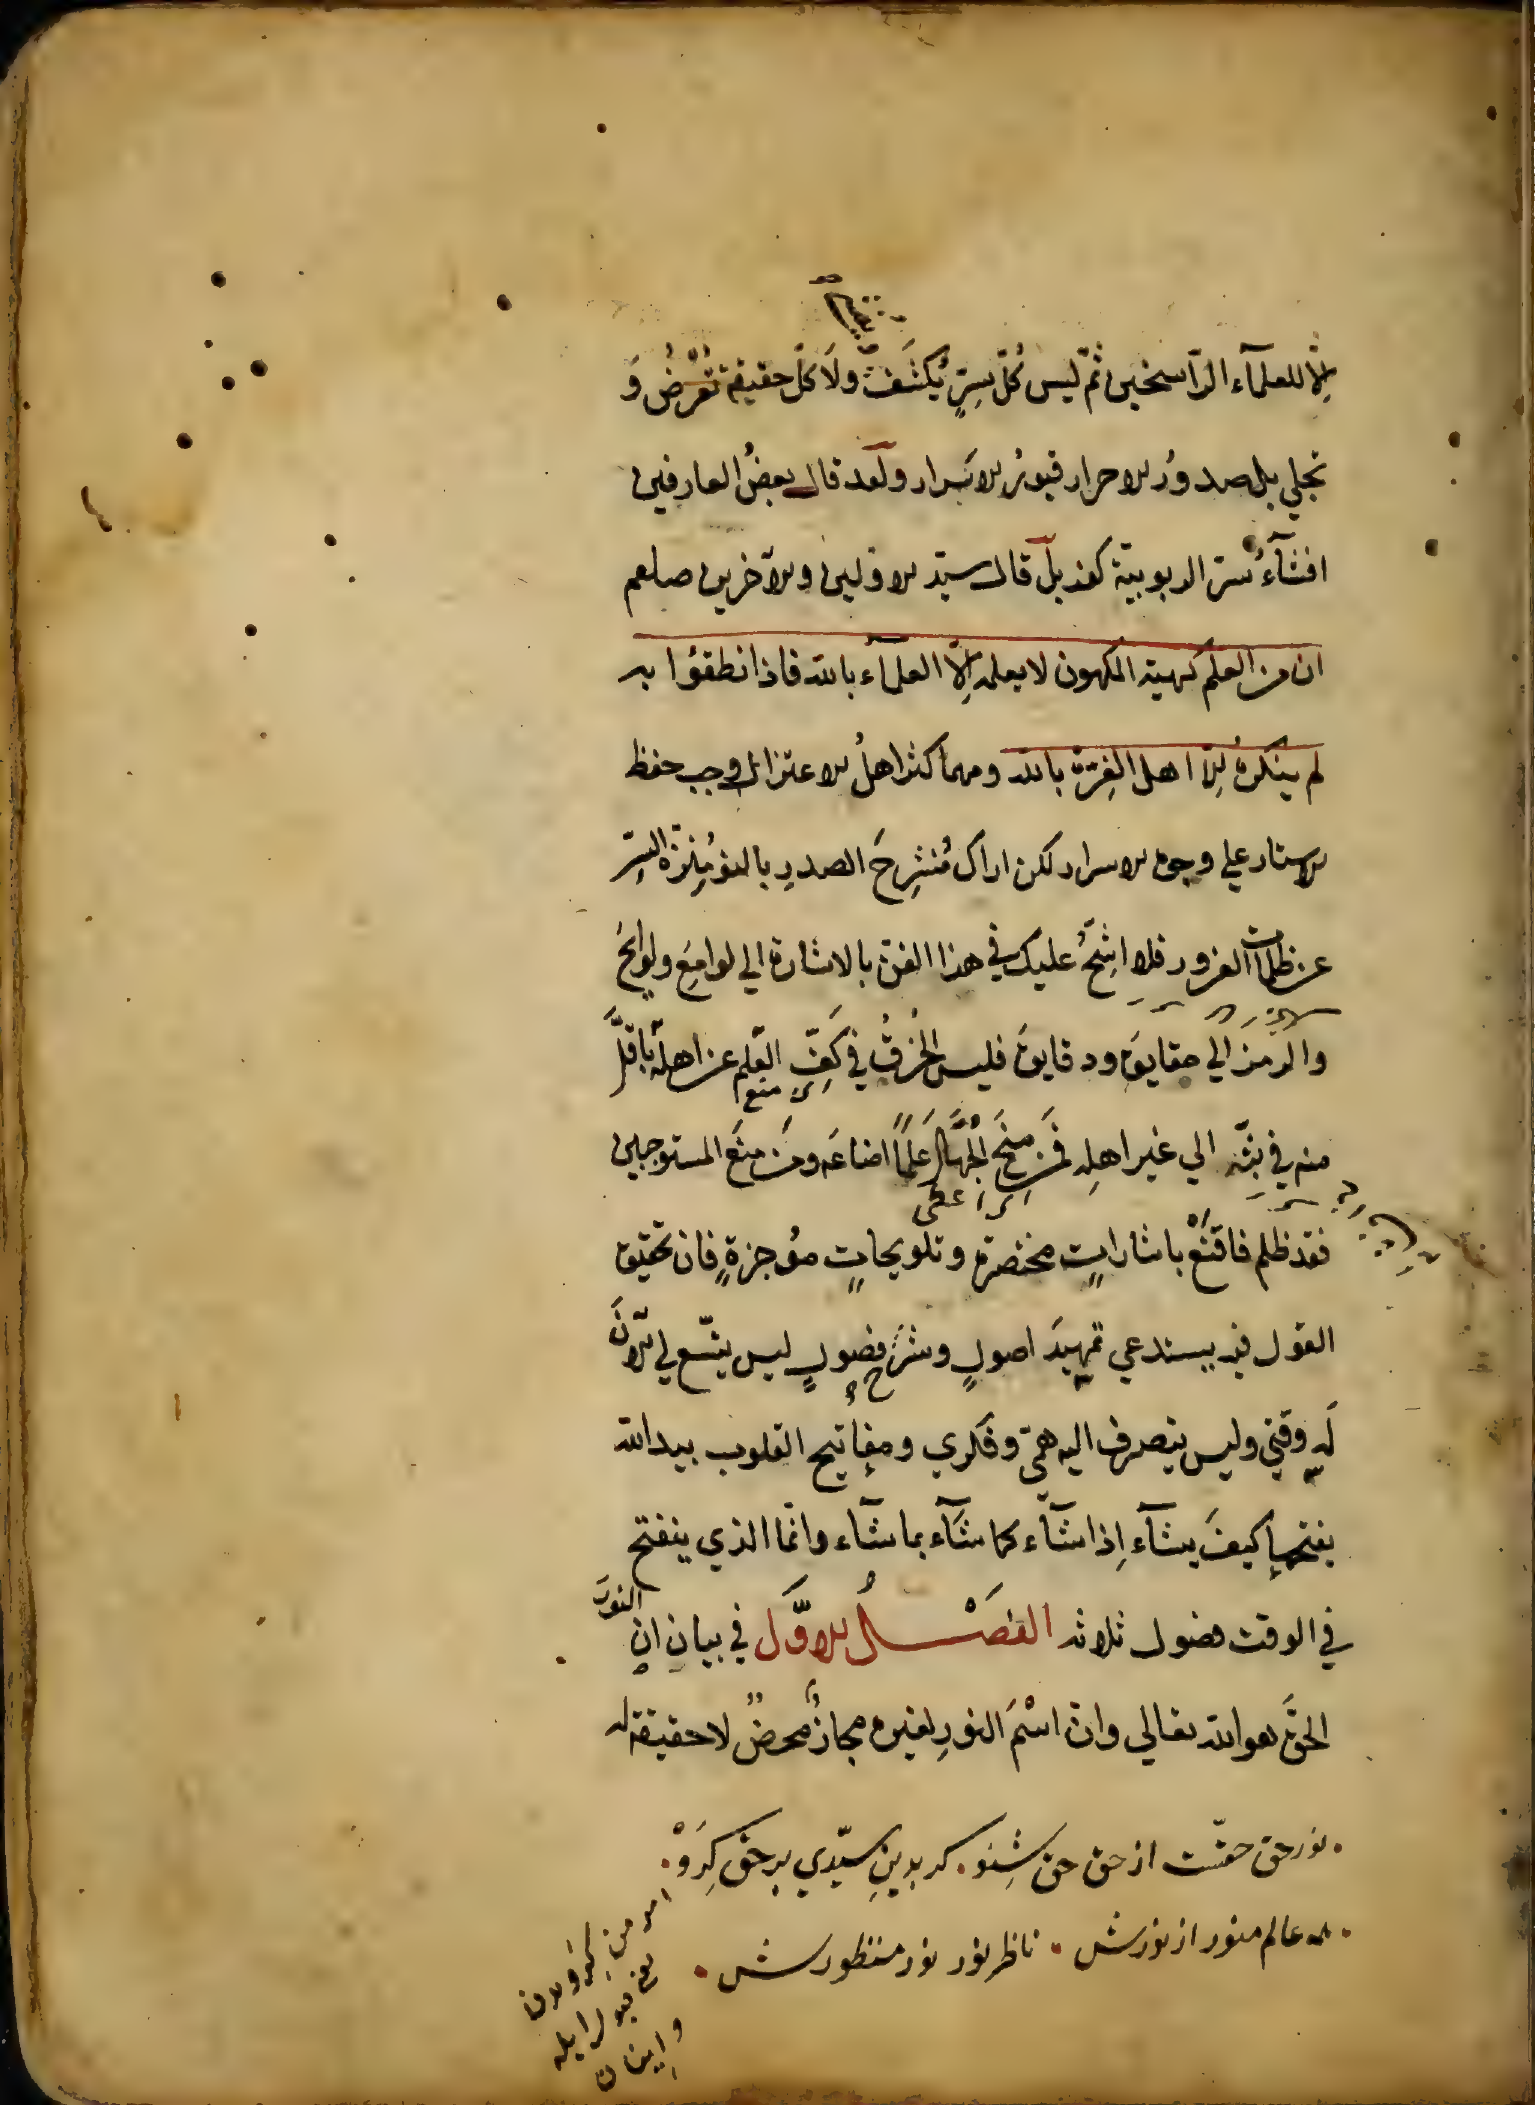 إلّا للعلمآء الرّاسخين ثمّ ليس كُلّ سِرٍّ يُكشَفُ ولَا كلّ حقيقة تُعْرَضُ وَ
تجلي بل صدورُ الاحرار قبورُ الاسرار ولقد قال بعضُ العارفين
افشآءُ سرّ الربوبيّة كفر بل قال سيّد الاوّلين والآخرين صلعم
ان من العلم كهيئة المكنون لا يعلمه إلّا العلمآء بالله فاذا نطقوا به
لم ينكرهُ إلّا اهل الغِرّة بالله ومهما كثر اهلُ الاعتزال وجب حفظ
الاستار علي وجوه الاسرار لكن اراك مُنشرِحَ الصدرِ بالنور مُنزّه السِرّ
عن ظلمات الغرور فلا اشِحُّ عليك في هذا الفنّ بالاشارة الي لوامِعَ ولوائحَ
والرمز الي حقايقَ ودقايقَ فليس الخَرقُ في كفِّ العِلم عن اهله باقلَّ
منع
منه في بثّه الي غير اهلِه فَمَن منَحَ الجُهّالَ عِلمًا اضاعَه ومَن منَعَ المستوجبين
اعطى
فقد ظلم فاقنَعْ باشاراتٍ مختصرة وتلويحاتٍ مُوجزةٍ فان تحقيق
القول فيه يستدعي تمهيدَ اصولٍ وشرْحَ فصولٍ ليس يتّسع لي الآنَ
لَه وقتي وليس ينصرف اليه همّي وفكري ومفاتيح القلوب بيد الله
يفتحها كيفَ يشآء إذا شآء كما شآء بما شآء وانّما الذي ينفتح
في الوقت فصول ثلاثه الفصْلُ الاوّل في بيان انّ النورَ
الحقَّ هو الله تعالي وان اسْمَ النورِ لغيره مجازٌ محضٌ لا حقيقة له
نور حق حقّست از حق حق شِنو . كه بدين سيّدي برحق كِرَوْ .
همه عالم منور از نورش . ناظر نور نور منظورش .